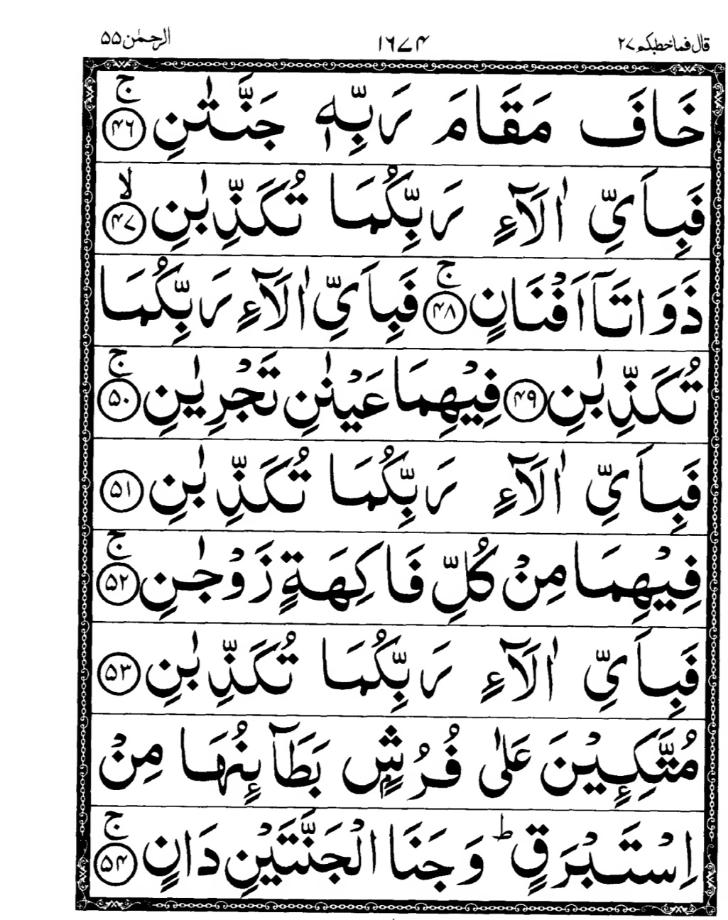 قال فماخطبكم ٢٧ ١٦٧۴ الرحمٰن ۵۵
خَافَ مَقَامَ رَبِّهٖ جَنَّتٰنِ ۚ﴿۴۶﴾
فَبِاَيِّ اٰلَآءِ رَبِّكُمَا تُكَذِّبٰنِ ۙ﴿۴۷﴾
ذَوَاتَاۤ اَفْنَانٍ ۚ﴿۴۸﴾ فَبِاَيِّ اٰلَآءِ رَبِّكُمَا
تُكَذِّبٰنِ ﴿۴۹﴾ فِيْهِمَا عَيْنٰنِ تَجْرِيٰنِ ۚ﴿۵۰﴾
فَبِاَيِّ اٰلَآءِ رَبِّكُمَا تُكَذِّبٰنِ ﴿۵۱﴾
فِيْهِمَا مِنْ كُلِّ فَاكِهَةٍ زَوْجٰنِ ۚ﴿۵۲﴾
فَبِاَيِّ اٰلَآءِ رَبِّكُمَا تُكَذِّبٰنِ ﴿۵۳﴾
مُتَّكِـِٕيْنَ عَلٰى فُرُشٍۭ بَطَآىِٕنُهَا مِنْ
اِسْتَبْرَقٍ ؕ وَجَنَا الْجَنَّتَيْنِ دَانٍ ۚ﴿۵۴﴾